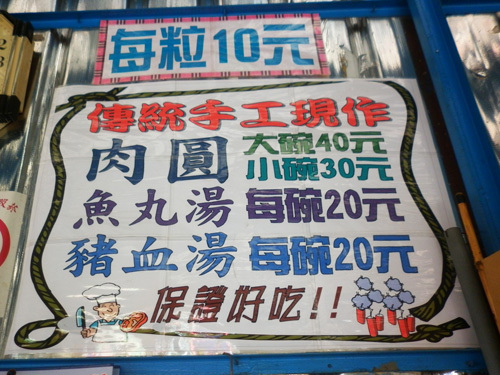 每粒10元
傳統手工現作
肉圓 大碗40元
小碗30元
魚丸湯 每碗20元
豬血湯 每碗20元
保證好吃!!